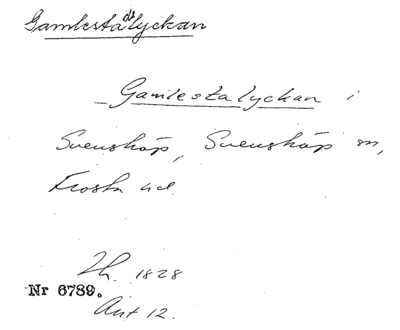 Gamlestadslyckan
Gamlestalyckan i
Svenskáp, Svenskáp sn,
Frosta hd.
1828
Nr 6789.
Akt 12.